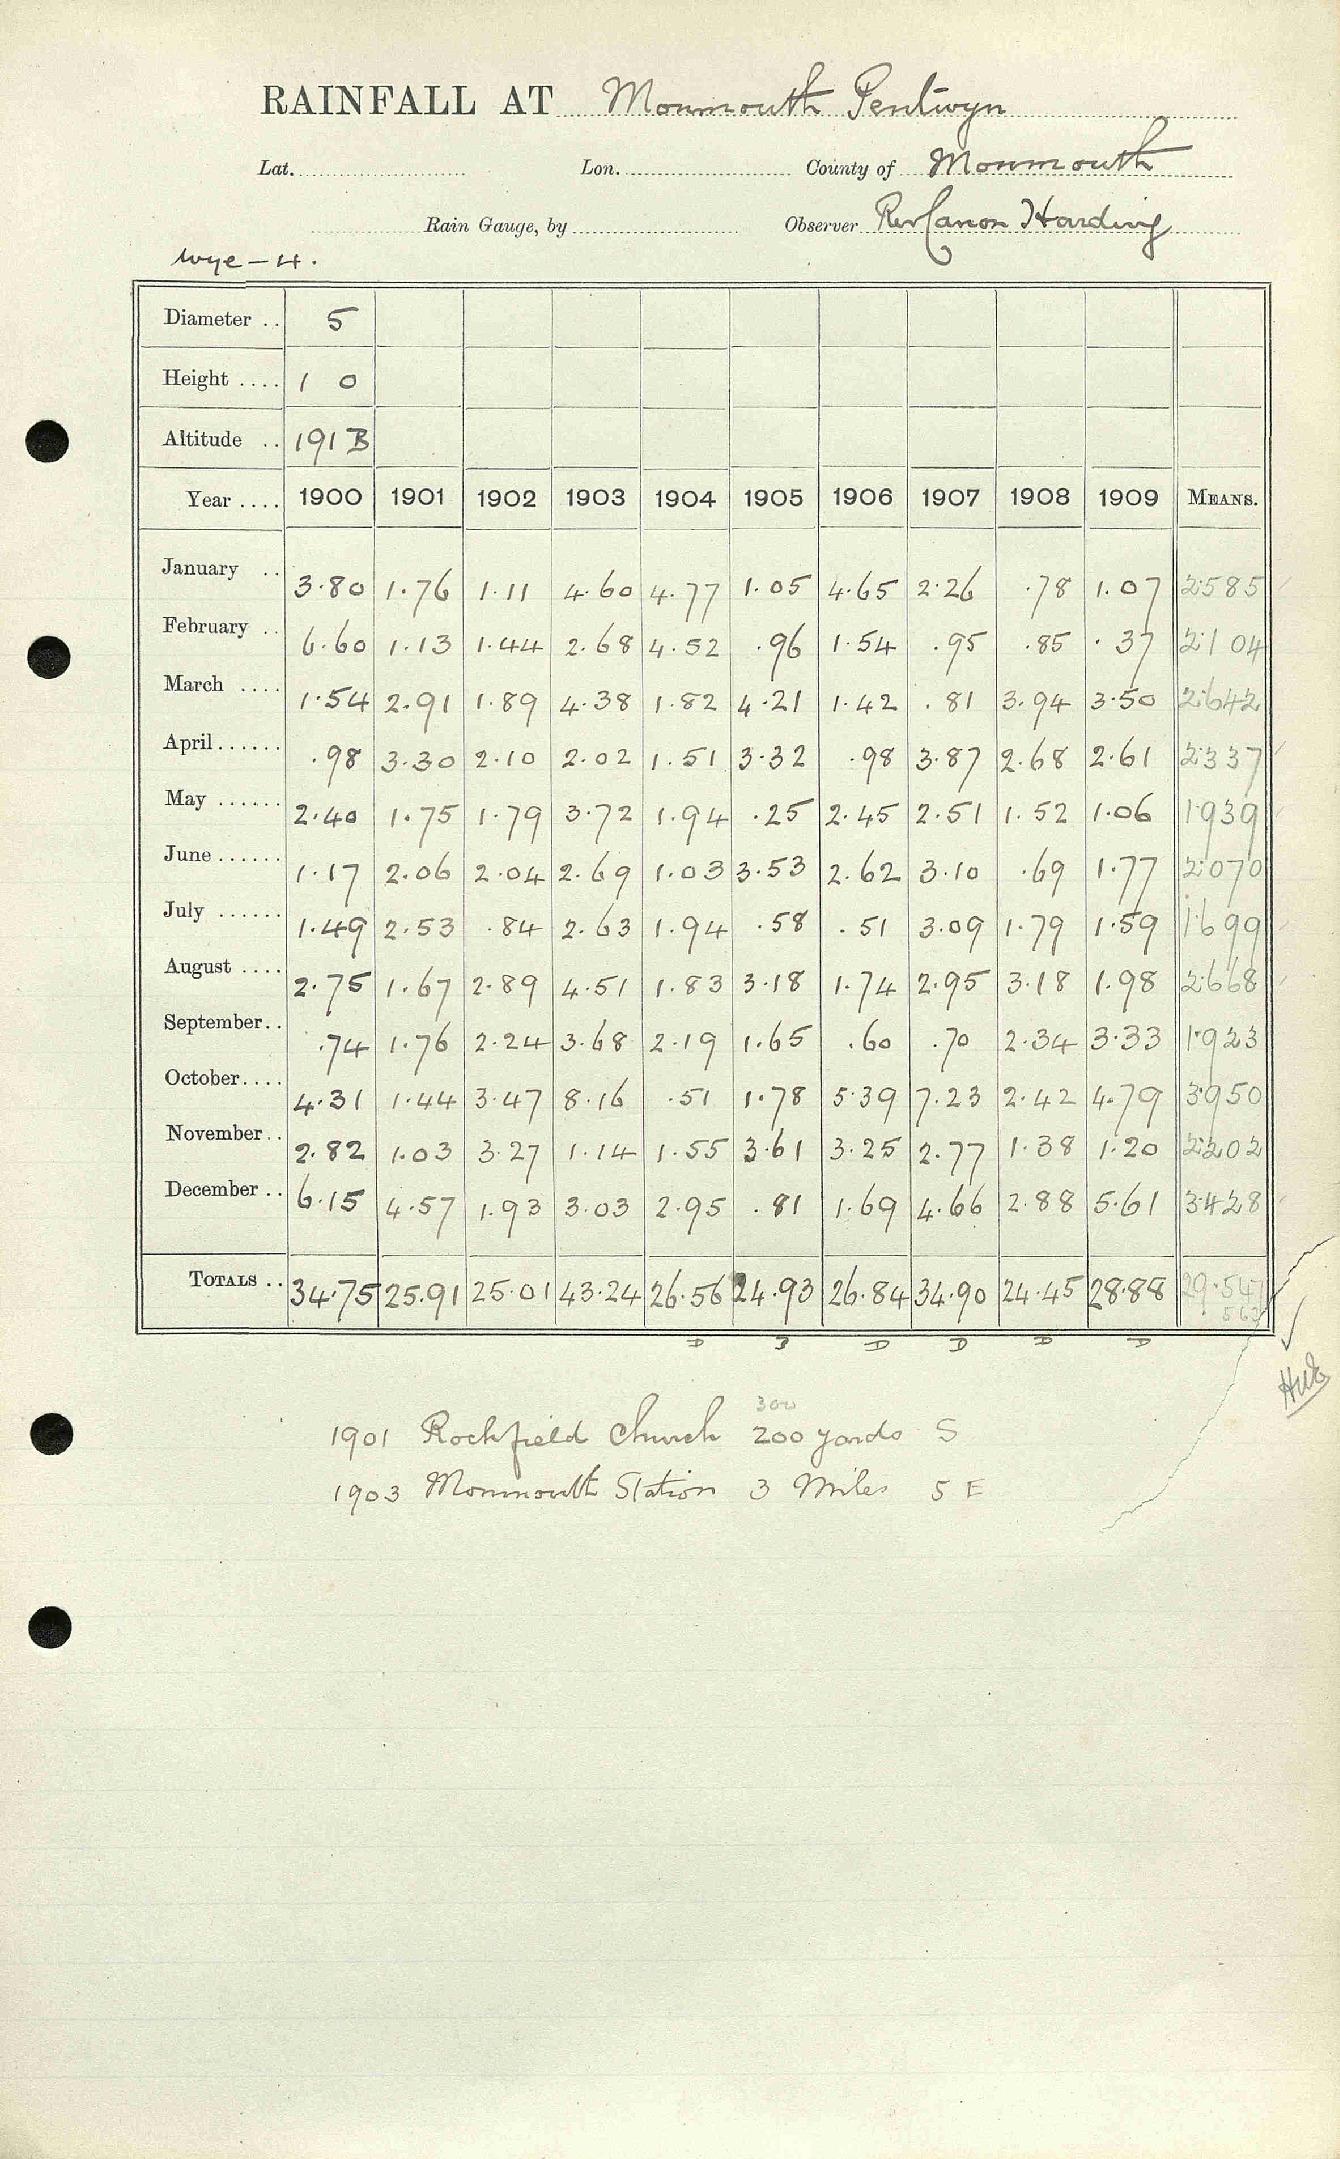 RAINFALL AT Monmouth Pentwyn
Lat. Lon. County of Monmouth
Rain Gauge, by Observer Rev Canon Harding
Wye - H.
Diameter .. 5
Height .... 1 0
Altitude .. 191 B
Year .... 1900 1901 1902 1903 1904 1905 1906 1907 1908 1909 MEANS.
January .. 3.80 1.76 1.11 4.60 4.77 1.05 4.65 2.26 .78 1.07 2.585
February .. 6.60 1.13 1.44 2.68 4.52 .96 1.54 .95 .85 .37 2.104
March .... 1.54 2.91 1.89 4.38 1.82 4.21 1.42 .81 3.94 3.50 2.642
April...... .98 3.30 2.10 2.02 1.51 3.32 .98 3.87 2.68 2.61 2.337
May ...... 2.40 1.75 1.79 3.72 1.94 .25 2.45 2.51 1.52 1.06 1.939
June...... 1.17 2.06 2.04 2.69 1.03 3.53 2.62 3.10 .69 1.77 2.070
July ...... 1.49 2.53 .84 2.63 1.94 .58 .51 3.09 1.79 1.59 1.699
August .... 2.75 1.67 2.89 4.51 1.83 3.18 1.74 2.95 3.18 1.98 2.668
September.. .74 1.76 2.24 3.68 2.19 1.65 .60 .70 2.34 3.33 1.923
October.... 4.31 1.44 3.47 8.16 .51 1.78 5.39 7.23 2.42 4.79 3.950
November.. 2.82 1.03 3.27 1.14 1.55 3.61 3.25 2.77 1.38 1.20 2.202
December .. 6.15 4.57 1.93 3.03 2.95 .81 1.69 4.66 2.88 5.61 3.428
TOTALS .. 34.75 25.91 25.01 43.24 26.56 24.93 26.84 34.90 24.45 28.88 29.547
563
D B D D D D
300
1901 Rockfield Church 200 yards S
1903 Monmouth Station 3 Miles S E